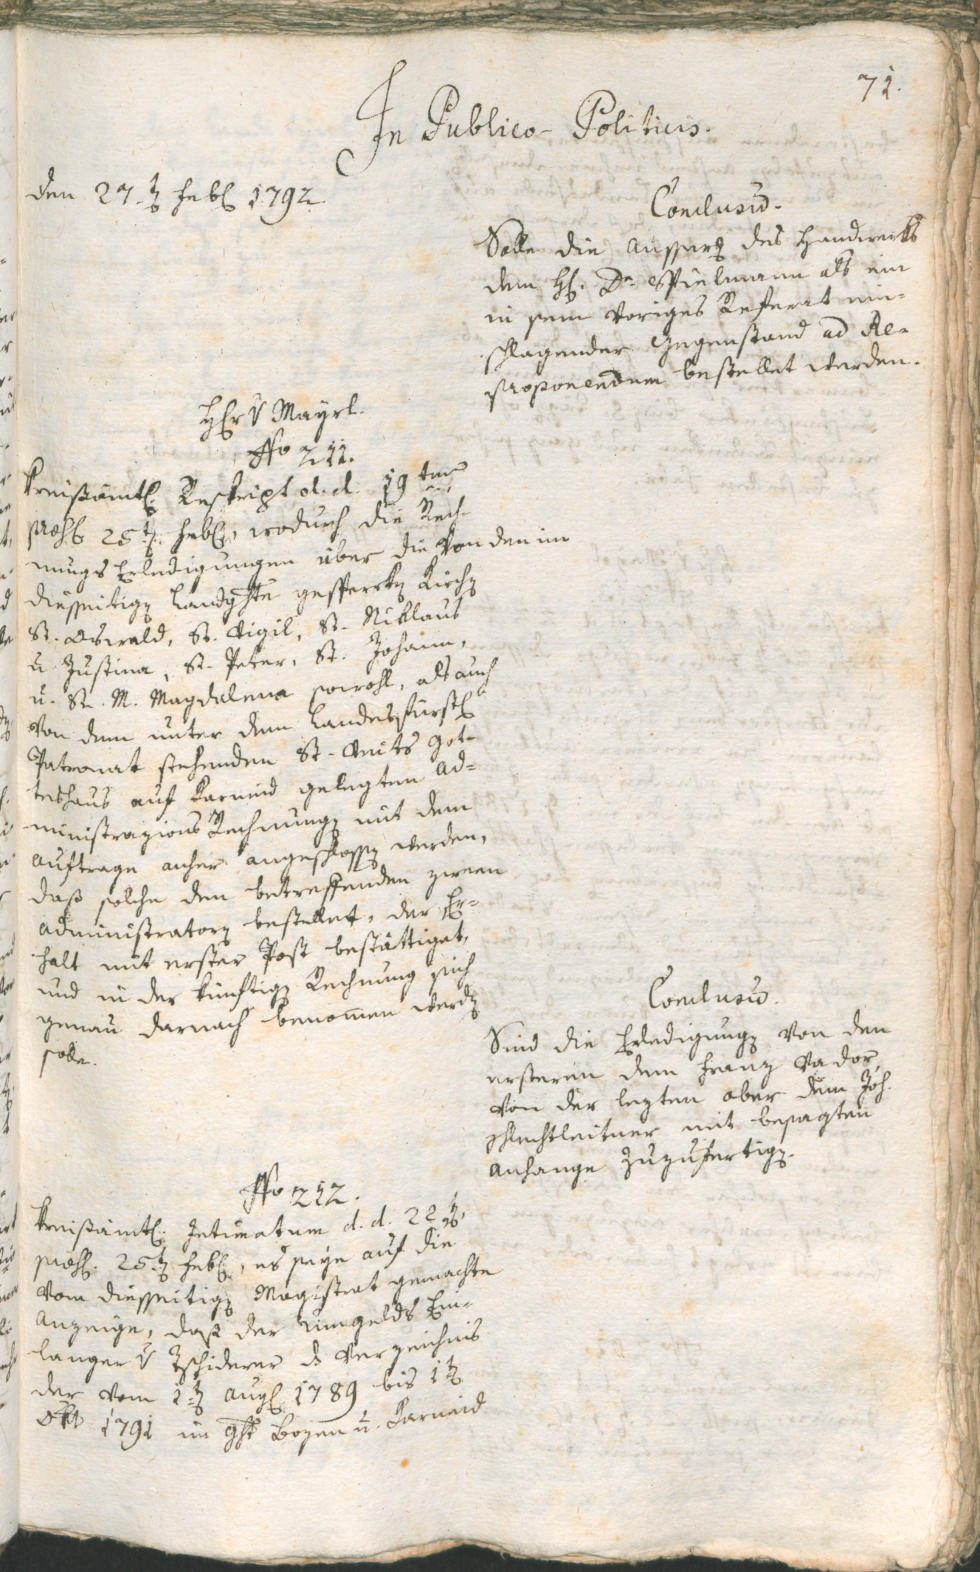 71.
In Publico-Politicis.
den 27.t Febr 1792.
Conclusū.
Solle die Aussprach des Handwerks
dem H. Dr. Spielmann als ein
in sein voriges Referat ein-
schlagender Gegenstand ad Re-
proponendum bestellet werden.
Hr v Mayrl.
Nro 211.
Kreisämtl. Reskript d. d. 19 ten
praes 25t. Febr, wodurch die Rech-
nungs Erledigungen über die von den im
diesseitigen Landgchte gesperrten Kirchen
St. Oswald, St. Vigil, St. Niklaus
u. Justina, St. Peter, St. Johann,
u. St. M. Magdalena sowohl, als auch
von dem unter dem Landesfürstl
Patronat stehenden St. Veits Got-
teshaus auf Karneid gelegten Ad-
ministrazions Rechnungen mit dem
Auftrage anher angeschlossen werden,
daß solche den betreffenden zween
Administratoren bestellet, der Er-
halt mit erster Post bestättiget,
und in der künftigen Rechnung sich
genau darnach benommen werden
solle.
Conclusū.
Sind die Erledigungen von den
ersteren dem Franz Vador,
von der lezten aber dem Joh.
Schlechtleitner mit besagten
Anhange zuzufertigen.
Nro 212.
Kreisämtl. Intimatum d. d. 22t,
praes. 25t Febr, es seye auf die
vom diesseitigen Magistrat gemachte
Anzeige, daß der Umgelds Ein-
langer v Tschiderer d Verzeichnis
der vom 1t Aug 1789 bis 1t
Okt 1791 im Gcht Bozen u. Karneid